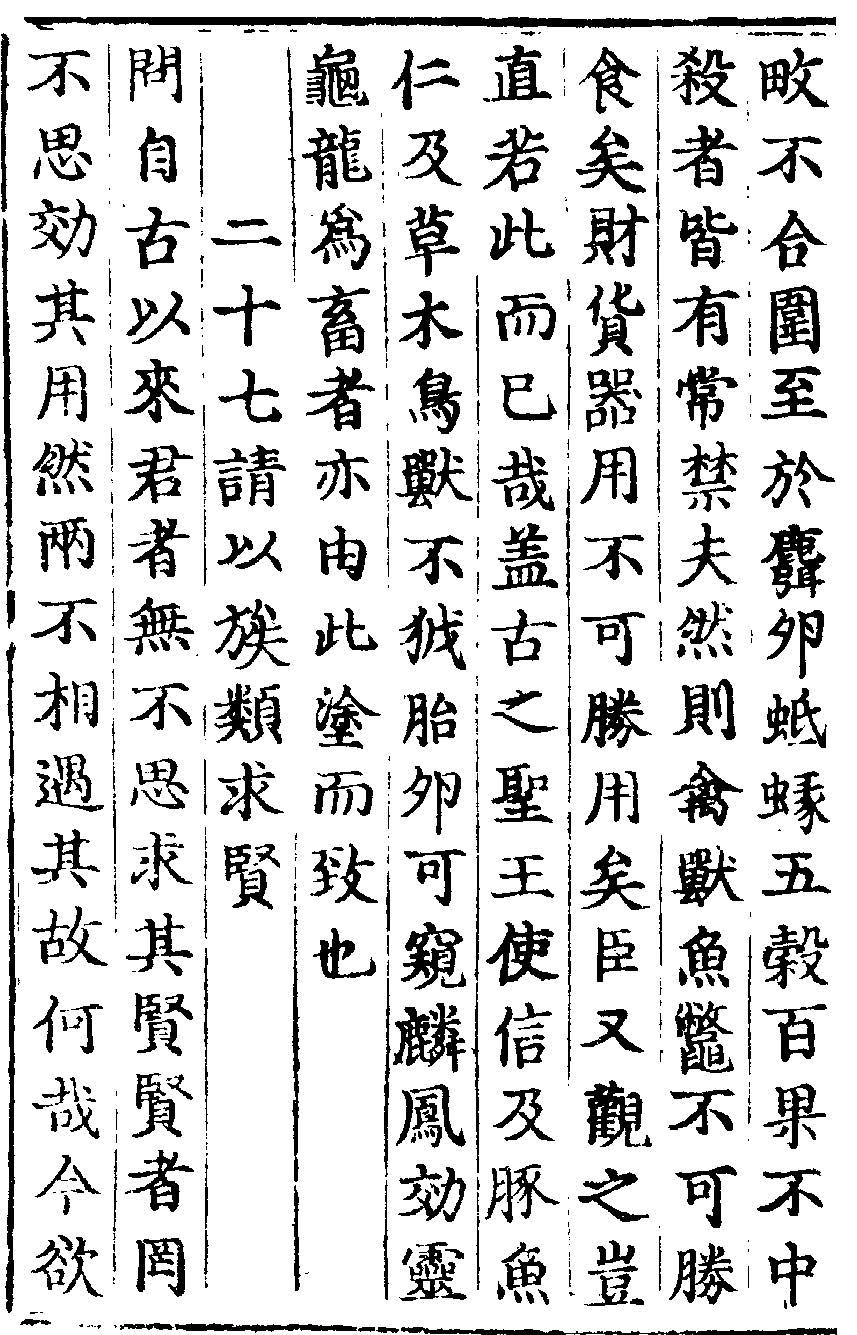 畋不合圍至於麛卵蚳蝝五榖百果不中
殺者皆有常禁夫然則禽獸魚鼈不可勝
食矣財貨器用不可勝用矣臣又觀之豈
直若此而已哉盖古之聖王使信及豚魚
仁及草木鳥獸不狘胎卵可窺麟鳳効靈
龜龍爲畜者亦由此塗而致也
二十七請以族類求賢
問自古以來君者無不思求其賢賢者罔
不思効其用然兩不相遇其故何哉今欲